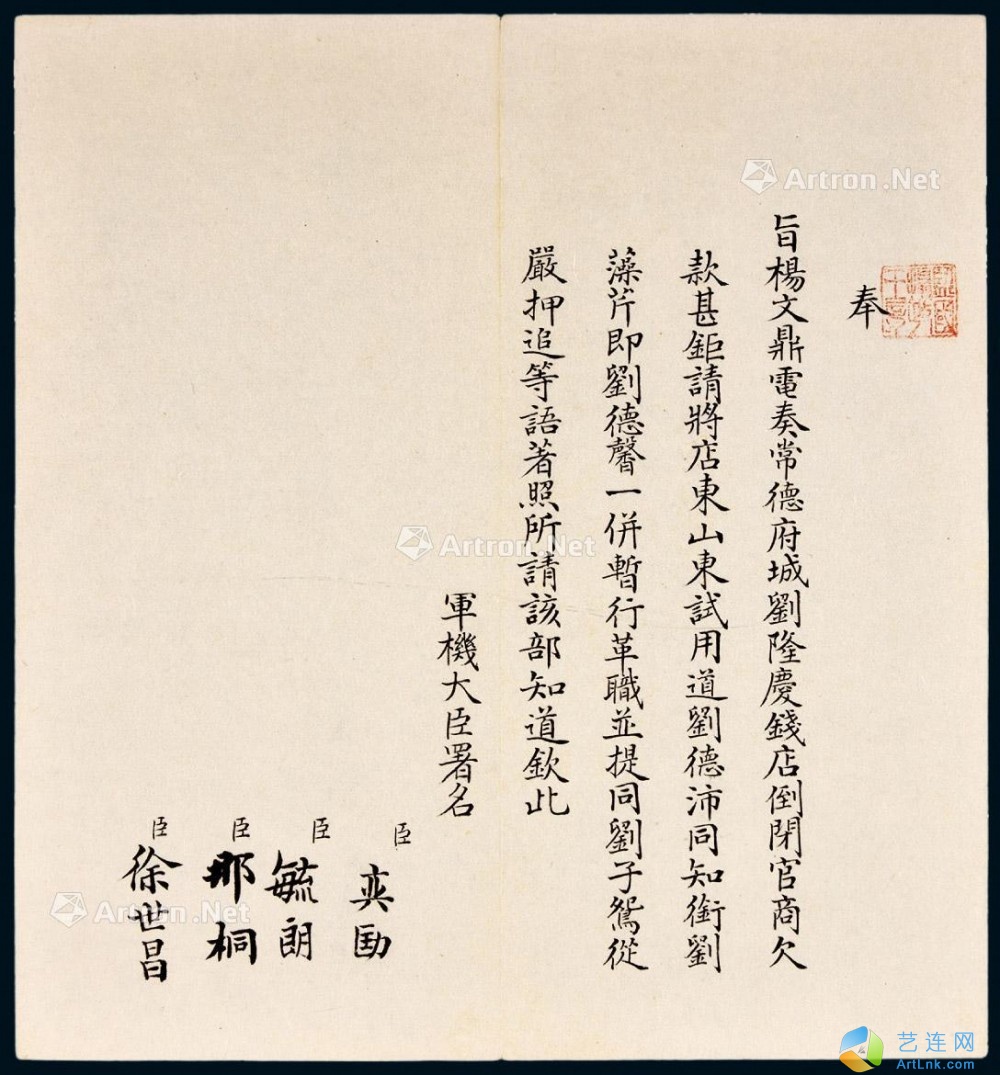 奉
旨楊文鼎電奏常德府城劉隆慶錢店倒閉官商欠
款甚鉅請將店東山東試用道劉德沛同知銜劉
藻芹即劉德馨一併暫行革職並提同劉子鴛從
嚴押追等語著照所請該部知道欽此
軍機大臣署名
臣奕劻
臣毓朗
臣那桐
臣徐世昌
Artron.Net
Artron.Net
Artron.Net
艺连网
ArtLnk.com